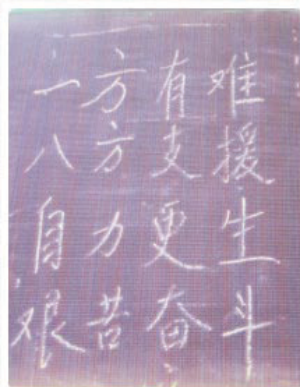 一方有难
八方支援
自力更生
艰苦奋斗